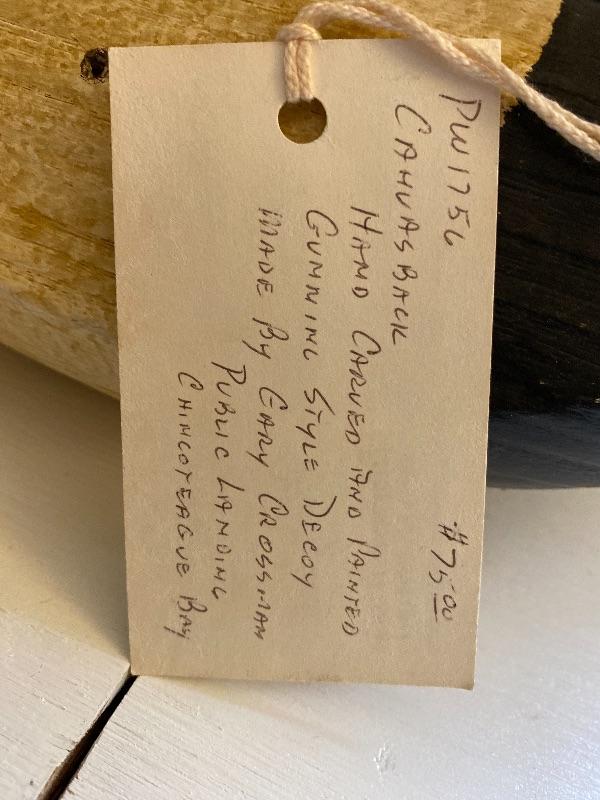 PW1756
$75.00
CANVASBACK
HAND CARVED AND PAINTED
GUNNING STYLE DECOY
MADE BY GARY CROSSMAN
PUBLIC LANDING
CHINCOTEAGUE BAY